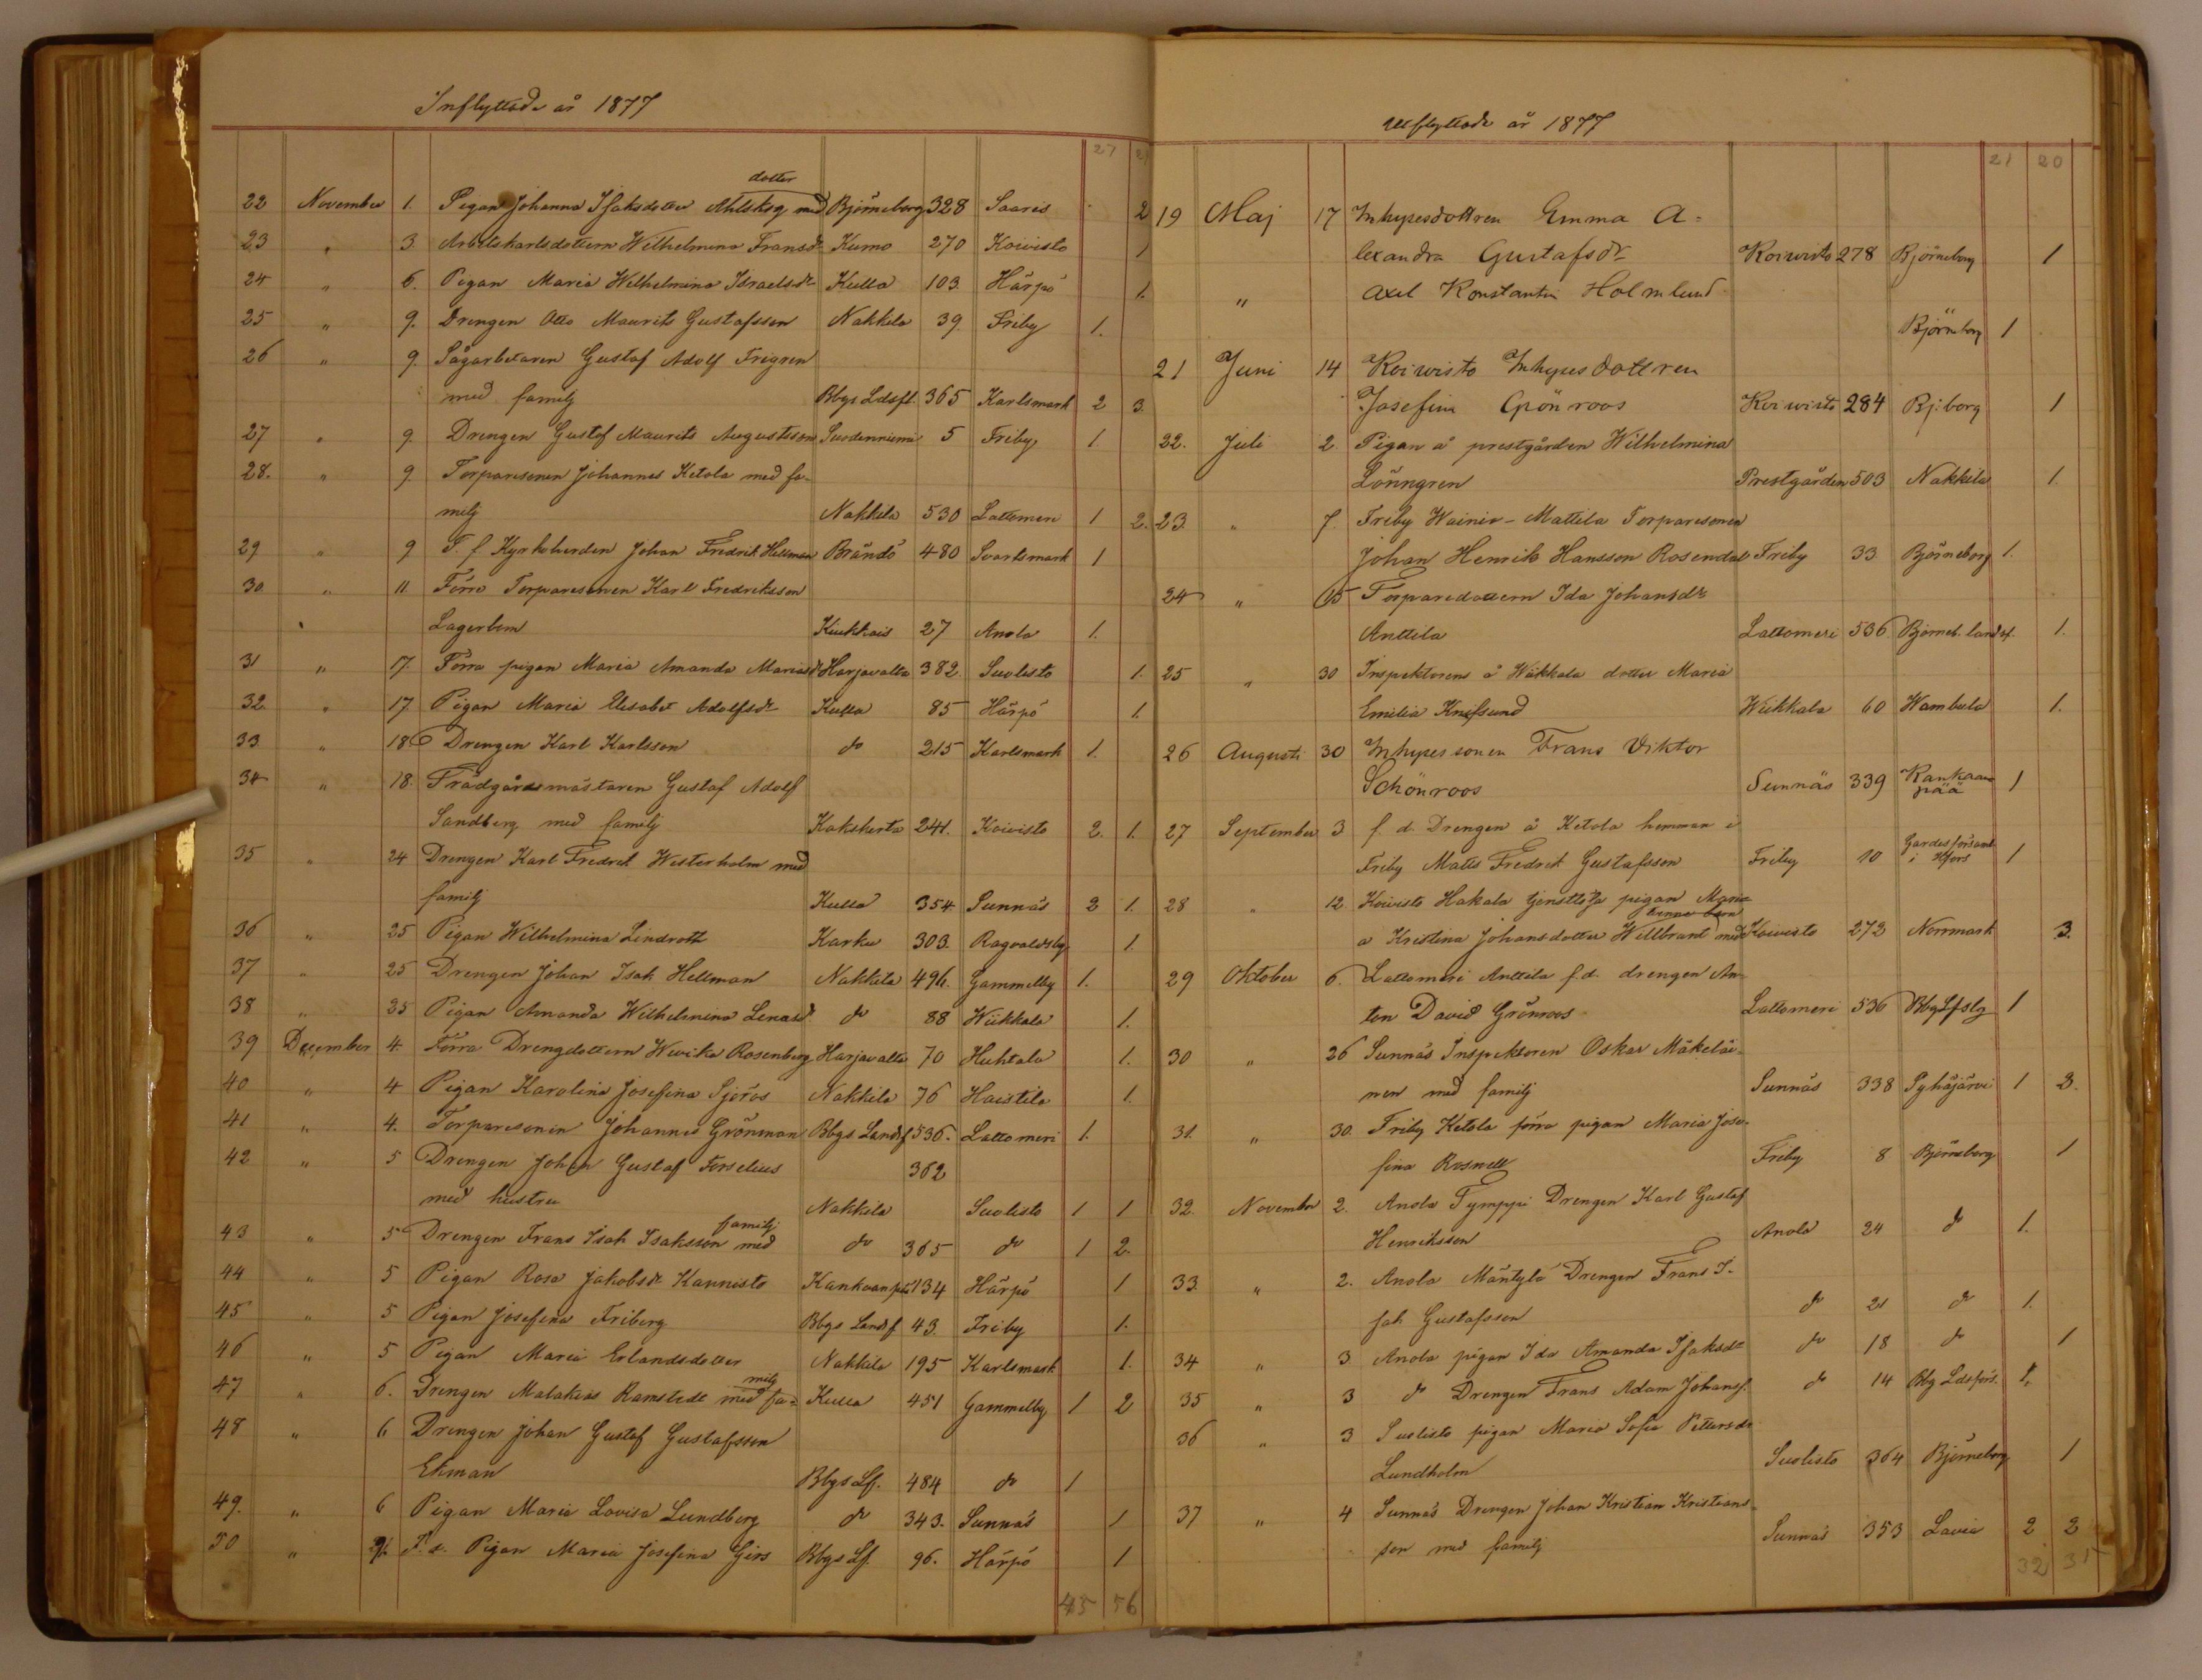 Inflyttade år 1877
27 2
dotter
22 November 1. Pigan Johanna Isaksdotter Ahlskog med Björneborg 328 Saaris 2
23 " 3. Arbetskarlsdottern Wilhelmina Fransdr Kumo 270 Koivisto 1
24 " 6. Pigan Maria Wilhelmina Israelsdr Kulla 103 Härpö 1.
25 " 9. Drengen Otto Maurits Gustafsson Nakkila 39 Friby 1.
26 " 9. Sågarbetaren Gustaf Adolf Frigren
med familj Bbgs Ldsfl. 365 Karlsmark 2 3.
27 " 9. Drengen Gustaf Maurits Augustsson Suodenniemi 5 Friby 1
28. " 9. Torparesonen Johannes Ketola med fa-
milj Nakkila 530 Lattomeri 1 2.
29 " 9 T. f. Kyrkoherden Johan Fredrik Hellman Brändö 480 Svartsmark 1
30. " 11 Förre Torparesonen Karl Fredriksson
Lagerbom 27 Anola 1.
31 " 17. Förra pigan Maria Amanda Mariasdr Harjavalta 382. Suolisto 1.
32. " 17 Pigan Maria Elisabet Adolfsdr Kulla 85 Härpö 1.
33 " 18 Drengen Karl Karlsson do 215 Karlsmark 1.
34 " 18. Trädgårdsmästaren Gustaf Adolf
Sandberg med familj Kakskerta 241. Koivisto 2. 1.
35 " 24 Drengen Karl Fredrik Westerholm med
familj Kulla 354 Sunnäs 2 1.
36 " 25 Pigan Wilhelmina Lindroth Karku 303. Ragvaldsby 1.
37 " 25 Drengen Johan Isak Hellman Nakkila 496. Gammelby 1.
38 " 25 Pigan Amanda Wilhelmina Lenasdr do 88 Wiikkala 1.
39 December 4. Förra Drengdottern Wevika Rosenberg Harjavalta 70 Huhtala 1.
40 " 4 Pigan Karolina Josefina Sjöros Nakkila 76 Haistila 1.
41 " 4. Torparesonen Johannes Grönman Bbgs Landsf 536. Lattomeri 1.
42 " 5 Drengen Johan Gustaf Forselius 362
med hustru Nakkila Suolisto 1 1
familj
43 " 5 Drengen Frans Isak Isaksson med do 365 do 1 2.
44 " 5 Pigan Rosa Jakobsdr Kannisto Kankaanpää 134 Härpö 1
45 " 5 Pigan Josefina Friberg Bbgs Landsf 43. Friby 1.
46 " 5 Pigan Maria Erlandsdotter Nakkila 195 Karlsmark 1.
milj
47 " 6. Drengen Malakias Ramstedt med fa= Kulla 451 Gammelby 1 2
48 " 6 Drengen Johan Gustaf Gustafsson
Ekman Bbgs Lf. 484 do 1
49. " 6 Pigan Maria Lovisa Lundberg do 343. Sunnäs 1
50 " F. d. Pigan Maria Josefina Girs Bbgs Lf. 96. Härpö 1
45 56
Utflyttade år 1877
21 20
19 Maj 17 Inhysesdottren Emma A=
lexandra Gustafsdr Koivisto 278 Björneborg 1
" Axel Konstantin Holmlund
Björneborg 1
21 Juni 14 Koivisto Inhysesdottren
Josefina Grönroos Koivisto 284 Bj:borg 1
22. Juli 2. Pigan å prestgården Wilhelmina
Lönngren Prestgården 503 Nakkila 1.
23. " 7. Friby Wainio-Mattila Torparesonen
Johan Henrik Hansson Rosendal Friby 33 Björneborg 1.
24 " 15 Torparedottern Ida Johansdr
Anttila Lattomeri 536 Björneb. landsf. 1.
25 " 30 Inspektorens å Wiikkala dotter Maria
Emilia Wiikkala 60 Wambula 1.
26 Augusti 30 Inhysessonen Frans Viktor
Schönroos Sunnäs 339 Kankaan
pää 1
27 September 3 f. d. Drengen å Ketola hemman i
Friby Matts Fredrik Gustafsson Friby 10 Gardesförsaml
i Hfors 1
28 " 12. Koivisto Hakala tjenstlösa pigan Mari=
a Kristina Johansdotter Willbrant med tvenne barn Koivisto 272 Norrmark 3.
29 Oktober 6. Lattomeri Anttila f.d. drengen An-
ton David Grönroos Lattomeri 536 Bbg Lfslg 1
30 " 26 Sunnäs Inspektoren Oskar Mäkeläi-
nen med familj Sunnäs 338 Pyhäjärvi 1 3.
31. " 30. Friby Ketola förra pigan Maria Jose-
fina Rosnell Friby 8 Björneborg 1
32. November 2. Anola Tymppi Drengen Karl Gustaf
Henriksson Anola 24 do 1.
33. " 2. Anola Mäntylä Drengen Frans I-
sak Gustafsson do 21 do 1.
34 " 3 Anola pigan Ida Amanda Isaksdr do 18 do 1
35 " 3 do Drengen Frans Adam Johanss. do 14 Bbg Ldsförs. 1.
36 " 3 Suolisto pigan Maria Sofia Pettersdr
Lundholm Suolisto 364 Björneborg 1
37 " 4 Sunnäs Drengen Johan Kristian Kristians-
son med familj Sunnäs 353 Lavia 2 2
32 31